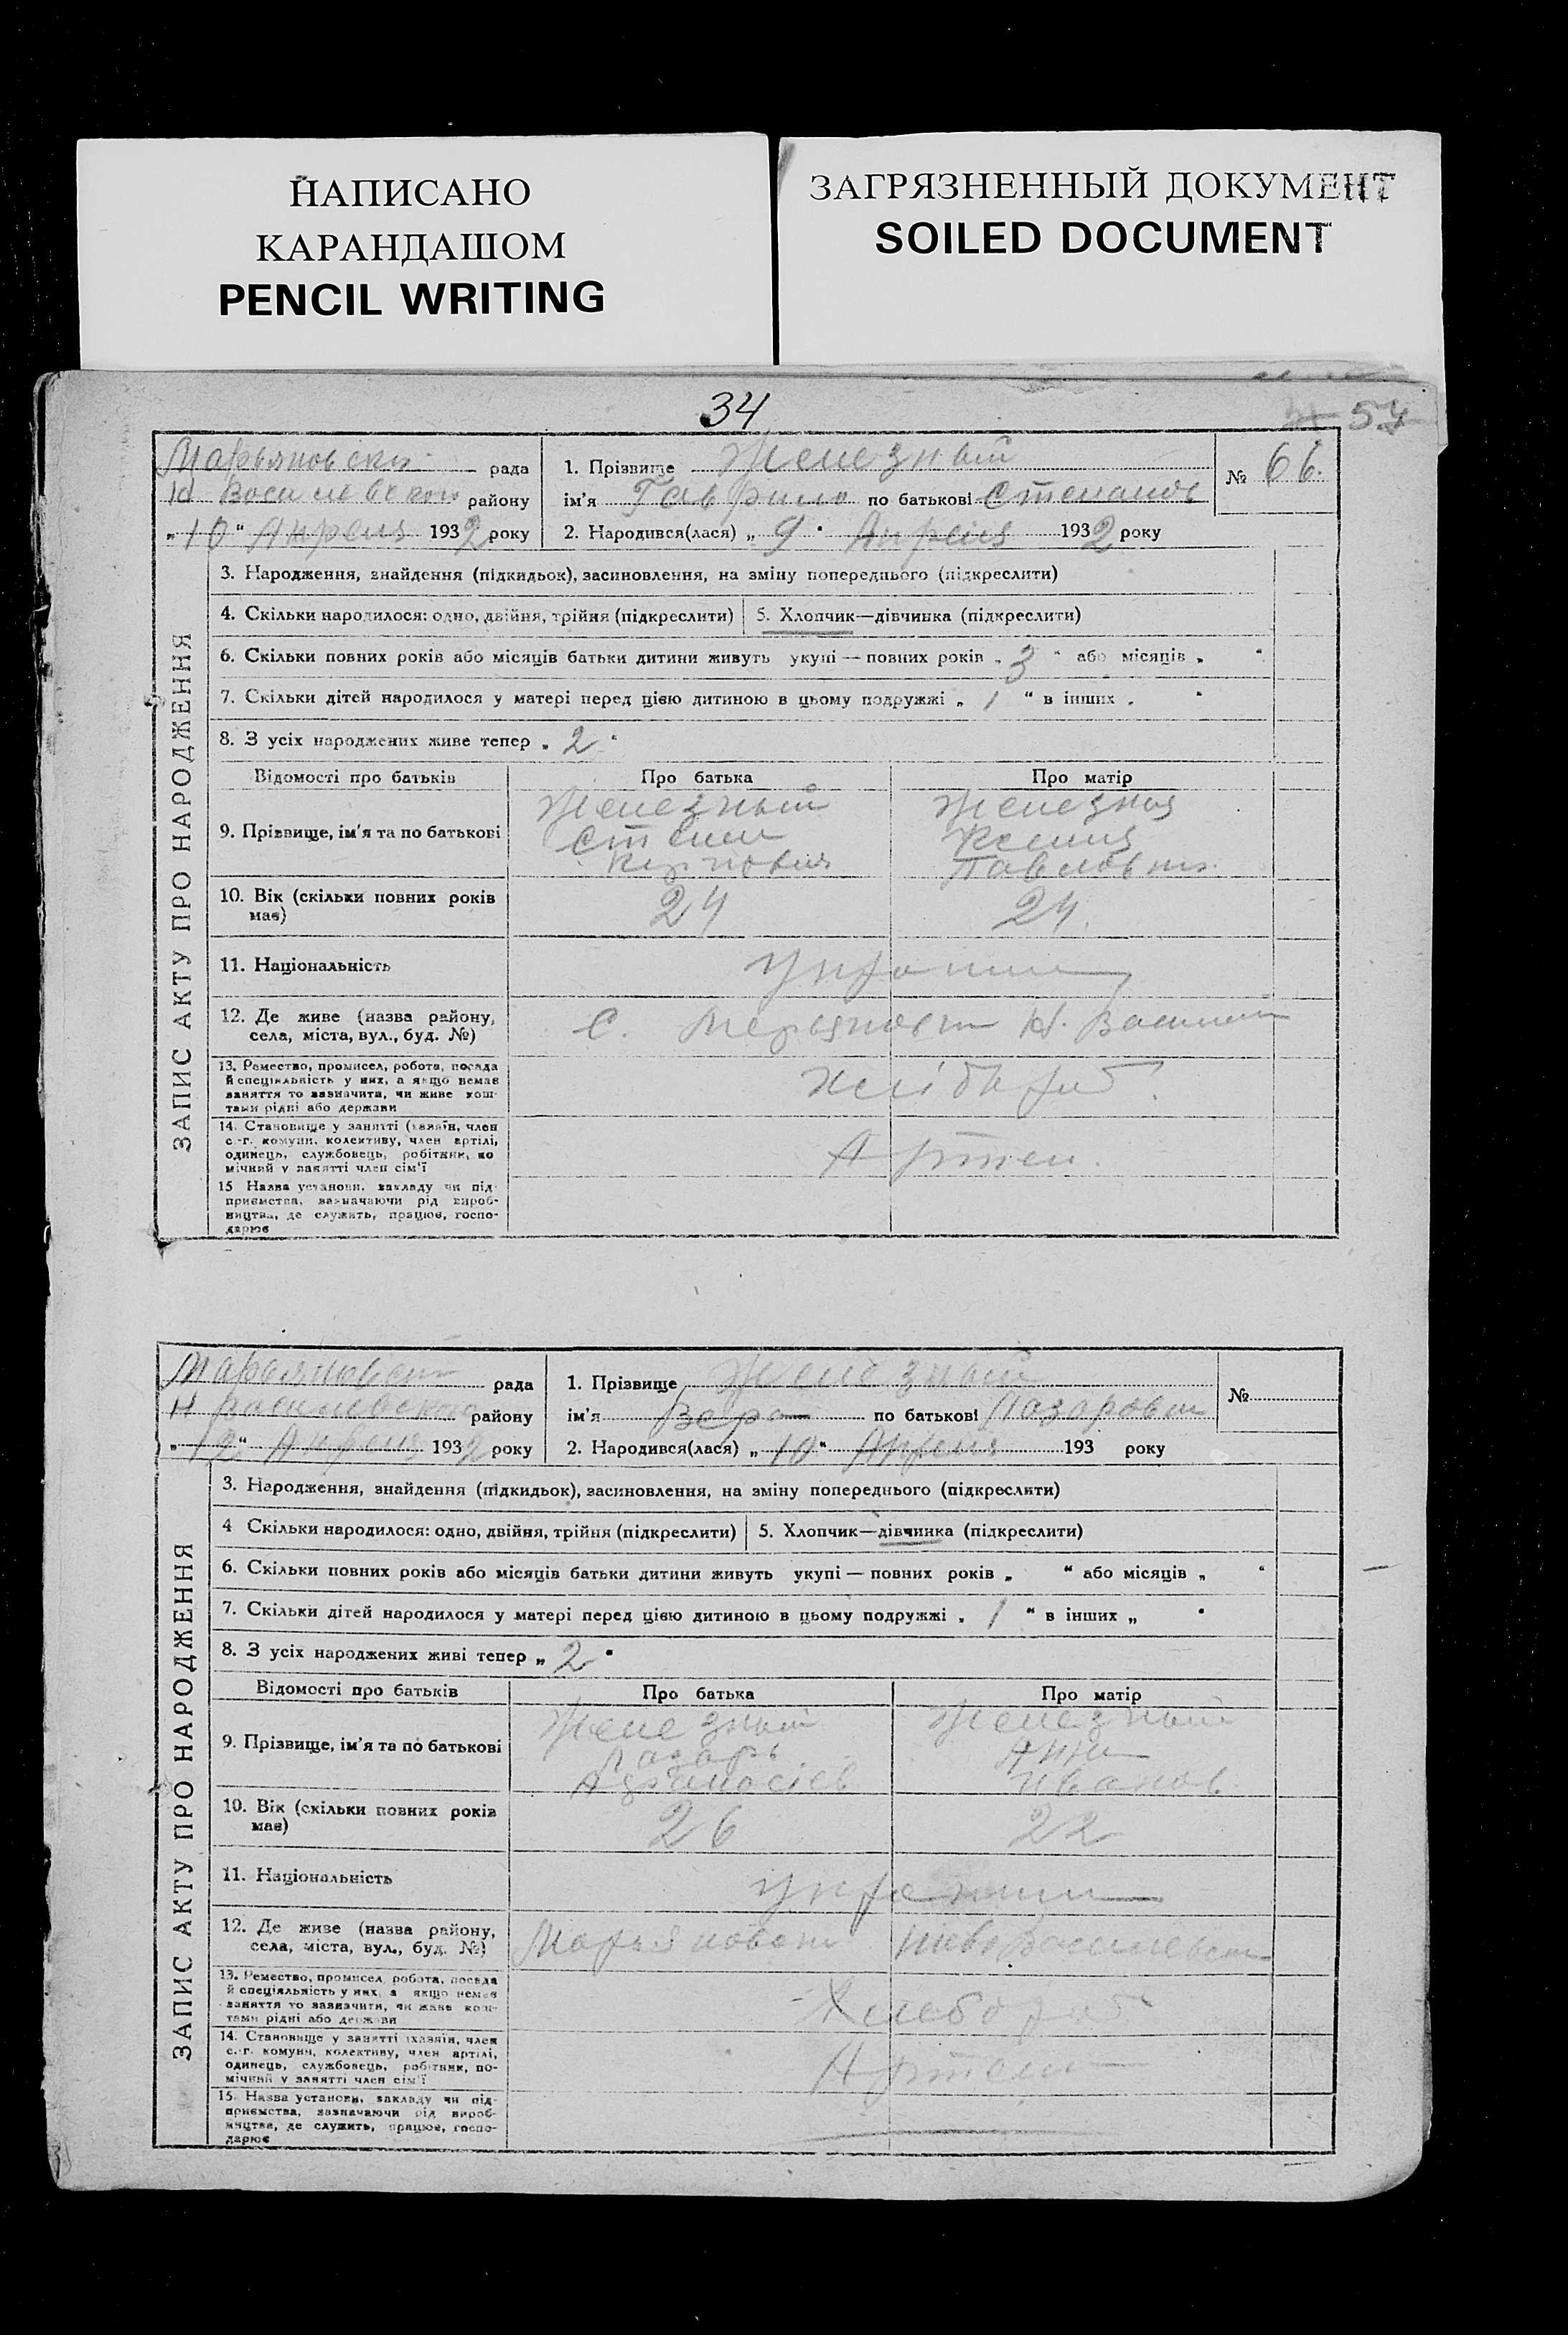 НАПИСАНО
КАРАНДАШОМ
PENCIL WRITING
ЗАГРЯЗНЕННЫЙ ДОКУМЕНТ
SOILED DOCUMENT
34
54
ЗАПИС АКТУ ПРО НАРОДЖЕННЯ
рада
Н Васильевского району
„10“ Апреля 1932 року
1. Прізвище Железный
ім'я Гаврило по батькові Степанов
№ 66.
2. Народився(лася) „9“ Апреля 1932 року
3. Народження, знайдення (підкидьок), засиновлення, на зміну попереднього (підкреслити)
4. Скільки народилося: одно, двійня, трійня (підкреслити)
5. Хлопчик—дівчинка (підкреслити)
6. Скільки повних років або місяців батьки дитини живуть укупі — повних років „3“ або місяців „ “
7. Скільки дітей народилося у матері перед цією дитиною в цьому подружжі „1“ в інших „ “
8. З усіх народжених живе тепер „2“
Відомості про батьків
Про батька
Про матір
9. Прізвище, ім'я та по батькові
Железный
Степан
Железная
10. Вік (скільки повних років
має)
24
24.
11. Національність
12. Де живе (назва району,
села, міста, вул., буд. №)
13. Ремество, промисел, робота, посада
й спеціяльність у них, а якщо немає
заняття то зазначити, чи живе кош-
тами рідні або держави
Хліборуб.
14. Становище у занятті (хазяїн, член
с.-г. комуни, колективу, член артілі,
одинець, службовець, робітник, по
мічний у занятті член сім'ї
Артел.
15 Назва установи, закладу чи під-
приємства, зазначаючи рід вироб-
ництва, де служить, працює, госпо-
дарює
ЗАПИС АКТУ ПРО НАРОДЖЕННЯ
рада
Н Василевского району
„12“ Апреля 1932 року
1. Прізвище Железный
ім'я Вера по батькові Лазаровна
№
2. Народився(лася) „10“ Апреля 193 року
3. Народження, знайдення (підкидьок), засиновлення, на зміну попереднього (підкреслити)
4 Скільки народилося: одно, двійня, трійня (підкреслити)
5. Хлопчик—дівчинка (підкреслити)
6. Скільки повних років або місяців батьки дитини живуть укупі — повних років „ “ або місяців „ “
7. Скільки дітей народилося у матері перед цією дитиною в цьому подружжі „1“ в інших „ “
8. З усіх народжених живі тепер „2“
Відомості про батьків
Про батька
Про матір
9. Прізвище, ім'я та по батькові
Железный
Лазарь
Железный
Анна
Иванов.
10. Вік (скільки повних років
має)
26
22
11. Національність
12. Де живе (назва району,
села, міста, вул., буд. №)
13. Ремество, промисел, робота, посада
й спеціяльність у них, а якщо немає
заняття то зазначити, чи живе кош-
тами рідні або держави
Хлебороб
14. Становище у занятті (хазяїн, член
с.-г. комуни, колективу, член артілі,
одинець, службовець, робітник, по-
мічний у занятті член сім'ї
Артели
15. Назва установи, закладу чи під-
приємства, зазначаючи рід вироб-
ництва, де служить, працює, госпо-
дарює